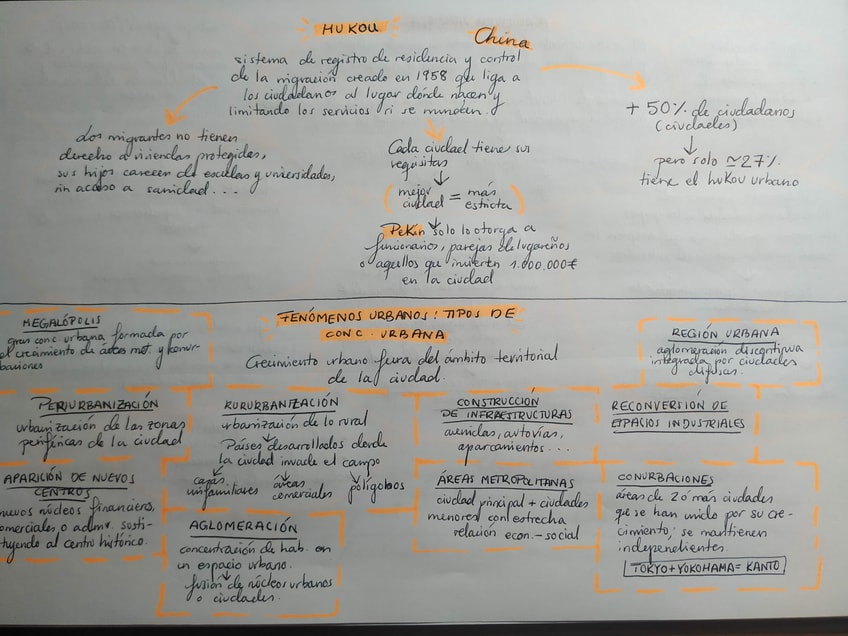 HUKOU
China
sistema de registro de residencia y control
de la migración creado en 1958 que liga a
los ciudadanos al lugar donde nacen y
limitando los servicios si se mudan.
Los migrantes no tienen
derecho a viviendas protegidas,
sus hijos carecen de escuelas y universidades,
sin acceso a sanidad...
Cada ciudad tiene sus
requisitos
(mejor ciudad = más estricta)
Pekín solo lo otorga a
funcionarios, parejas de lugareños
o aquellos que invierten 1.000.000€
en la ciudad
+ 50% de ciudadanos
(ciudades)
pero solo ≃27%
tiene el hukou urbano
FENÓMENOS URBANOS: TIPOS DE
CONC. URBANA
Crecimiento urbano fuera del ámbito territorial
de la ciudad.
MEGALÓPOLIS
gran conc urbana formada por
el crecimiento de áreas met. y konur-
baciones
REGIÓN URBANA
aglomeración discontinua
integrada por ciudades
difusas.
PERIURBANIZACIÓN
urbanización de las zonas
periféricas de la ciudad
RURURBANIZACIÓN
urbanización de lo rural
Países desarrollados donde
la ciudad invade el campo
casas unifamiliares
áreas comerciales
polígolos
CONSTRUCCIÓN
DE INFRAESTRUCTURAS
avenidas, autovías,
aparcamientos...
RECONVERSIÓN DE
ESPACIOS INDUSTRIALES
APARICIÓN DE NUEVOS
CENTROS
nuevos núcleos financieros,
comerciales o admv. susti-
tuyendo al centro histórico.
AGLOMERACIÓN
concentración de hab. en
un espacio urbano.
fusión de núcleos urbanos
o ciudades.
ÁREAS METROPOLITANAS
ciudad principal + ciudades
menores con estrecha
relación econ.-social
CONURBACIONES
áreas de 2 ó más ciudades
que se han unido por su cre-
cimiento; se mantienen
independientes.
TOKYO+YOKOHAMA=KANTO